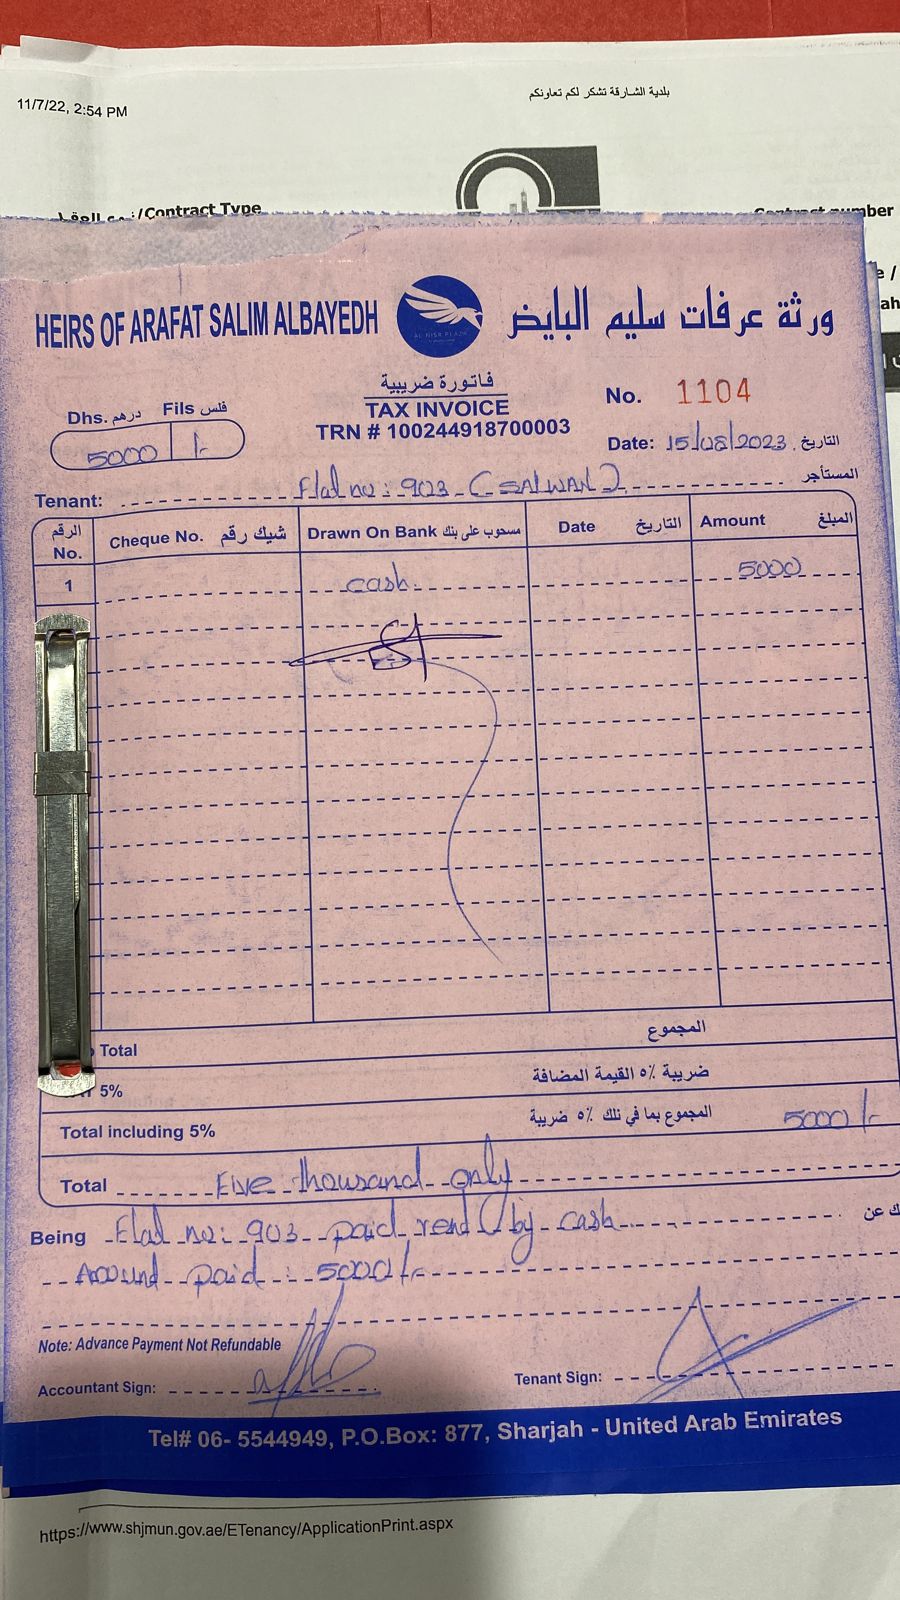 بلدية الشارقة تشكر لكم تعاونكم
11/7/22, 2:54 PM
/Contract Type
Contract number
HEIRS OF ARAFAT SALIM ALBAYEDH
AL NISR PLAZA
ورثة عرفات سليم البايض
فاتورة ضريبية
TAX INVOICE
TRN # 100244918700003
No. 1104
Dhs. درهم Fils فلس
5000 /-
Date: 15/08/2023 التاريخ
Tenant: Flat no: 903 (SALWAN) المستأجر
الرقم No. Cheque No. شيك رقم Drawn On Bank مسحوب على بنك Date التاريخ Amount المبلغ
1 cash 5000
Total المجموع
5% ضريبة ٥٪ القيمة المضافة
Total including 5% المجموع بما في ذلك ٥٪ ضريبة 5000/-
Total Five thousand only
Being Flat no: 903 paid rent by cash
Amount paid: 5000/-
Note: Advance Payment Not Refundable
Accountant Sign:
Tenant Sign:
Tel# 06- 5544949, P.O.Box: 877, Sharjah - United Arab Emirates
https://www.shjmun.gov.ae/ETenancy/ApplicationPrint.aspx